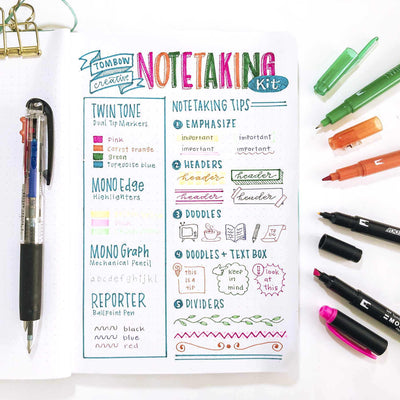 TOMBOW
creative
NOTETAKING
Kit
TWIN TONE
Dual Tip Markers
Pink
Carrot orange
Green
Turquoise blue
MONO Edge
Highlighters
MONO Graph
Mechanical Pencil
abcdefghijkl
REPORTER
BallPoint Pen
black
blue
red
NOTETAKING TIPS
1 EMPHASIZE
important important
important important
2 HEADERS
header header
header header
3 DOODLES
4 DOODLES + TEXT BOX
this is a tip
keep in mind
look at this
5 DIVIDERS